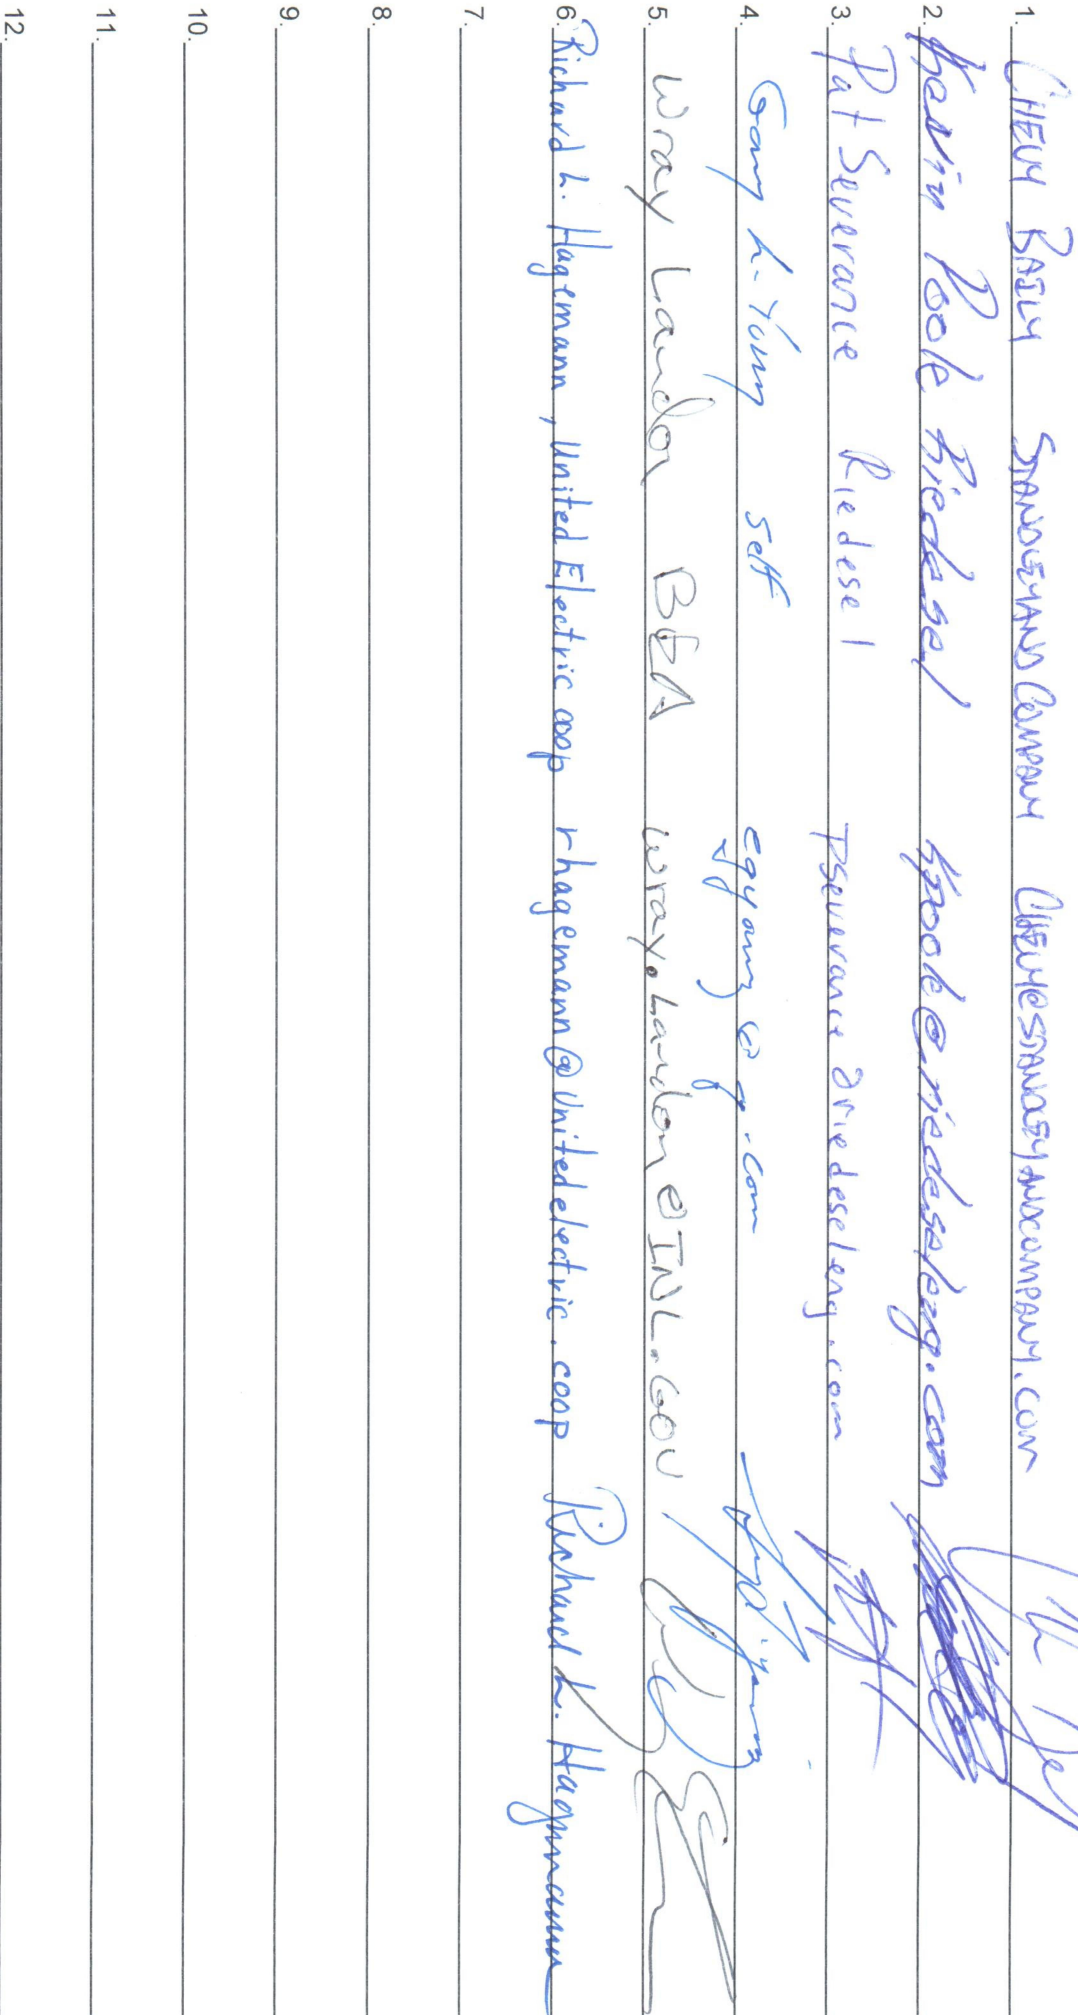 1. CHEVY BAILY STANDLEYANDCOMPANY CHEVY@STANDLEYANDCOMPANY.COM
2. Kevin Poole Riedesel kpoole@riedeseleng.com
3. Pat Severance Riedesel pseverance@riedeseleng.com
4. Gary L. Young Self
5. Wray Landon BEA wray.Landon@INL.GOV
6. Richard L. Hagemann, United Electric coop rhagemann@Unitedelectric.coop Richard L. Hagemann
7.
8.
9.
10.
11.
12.